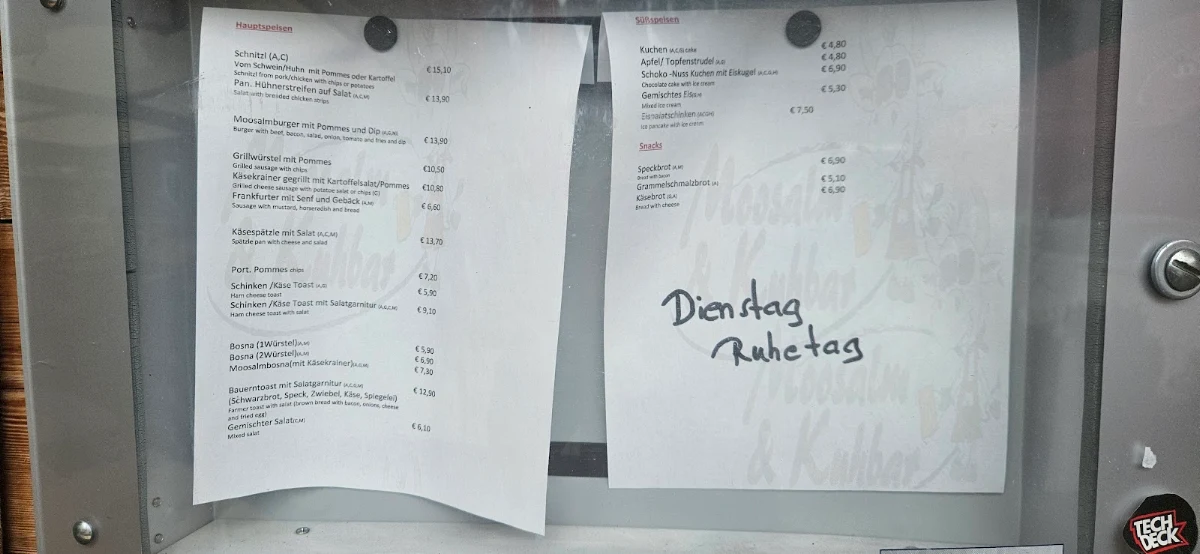 Hauptspeisen
Schnitzl (A,C) € 15,10
Vom Schwein/Huhn mit Pommes oder Kartoffel
Schnitzl from pork/chicken with chips or potatoes
Pan. Hühnerstreifen auf Salat (A,C,M) € 13,90
Salat with breaded chicken strips
Moosalmburger mit Pommes und Dip € 13,90
Burger with beef, bacon, salad, onion, tomato and fries and dip
Grillwürstel mit Pommes €10,50
Grilled sausage with chips
Käsekrainer gegrillt mit Kartoffelsalat/Pommes €10,80
Grilled cheese sausage with potatoe salat or chips (C)
Frankfurter mit Senf und Gebäck (A,M) € 6,60
Sausage with mustard, horseradish and bread
Käsespätzle mit Salat (A,C,M) € 13,70
Spätzle pan with cheese and salad
Port. Pommes chips € 7,20
Schinken /Käse Toast (A,G) € 5,90
Ham cheese toast
Schinken /Käse Toast mit Salatgarnitur € 9,10
Ham cheese toast with salat
Bosna (1Würstel) € 5,90
Bosna (2Würstel) € 6,90
Moosalmbosna(mit Käsekrainer) € 7,30
Bauerntoast mit Salatgarnitur € 12,90
(Schwarzbrot, Speck, Zwiebel, Käse, Spiegelei)
Farmer toast with salat (brown bread with bacon, onions, cheese
and fried egg)
Gemischter Salat(C,M) € 6,10
Mixed salat
Süßspeisen
Kuchen (A,C,G) cake € 4,80
Apfel/ Topfenstrudel € 4,80
Schoko -Nuss Kuchen mit Eiskugel € 6,90
Chocolate cake with ice cream
Gemischtes Eis € 5,30
Mixed ice cream
€ 7,50
Ice pancake with ice cream
Snacks
Speckbrot (A,M) € 6,90
Bread with bacon
Grammelschmalzbrot (A) € 5,10
Käsebrot (G,A) € 6,90
Bread with cheese
Moosalm
& Kuhbar
Dienstag
Ruhetag
Moosalm
& Kuhbar
TECH
DECK